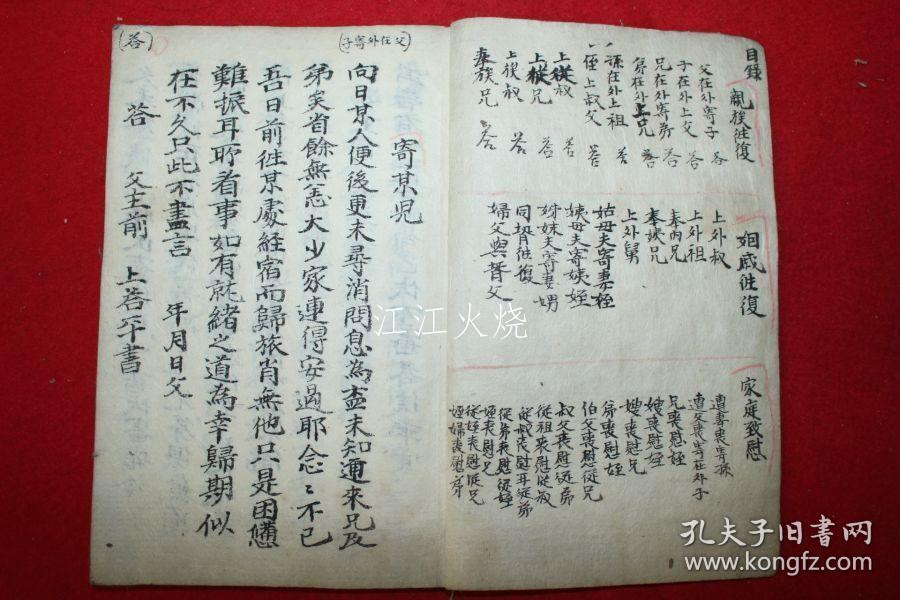 目錄
親族往復
父在外寄子 答
子在外上父 答
兄在外寄弟 答
弟在外上兄 答
孫在外上祖 答
侄上叔父 答
上從叔
上從兄 答
上族叔 答
奉族兄
姻戚往復
上外叔
上外祖
奉內兄
奉姨兄
上外舅
姑母夫寄妻侄
姨母夫寄姨姪
姊妹夫寄妻甥
同壻往復
婦父與壻父
家庭致慰
遭妻喪寄孫
遭父喪寄在外子
兄喪慰姪
嫂喪慰姪
弟喪慰姪
伯父喪慰從兄
叔父喪慰從弟
從祖喪慰從叔
從叔喪慰再從弟
從弟喪慰從姪
姪喪慰兄
從姪喪慰從兄
姪婦喪慰弟
(父在外寄子)
寄某児
向日某人便後更未尋消問息為盍未知邇來兄及
弟矣省餘無恙大少家連得安過耶念〻不已
吾日前徃某處経宿而歸旅肖無他只是困憊
難振耳所看事如有就緒之道為幸歸期似
在不久只此不盡言 年月日父
(答)
答 父主前 上答平書
江江火烧
孔夫子旧书网
www.kongfz.com